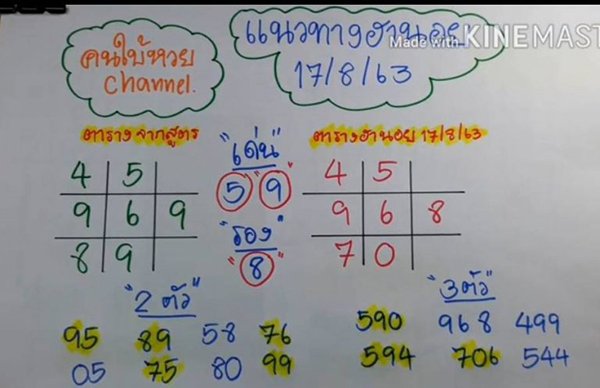 แนวทางฮานอย
Made with KINEMAST
คนใบ้หวย
Channel.
17/8/63
ตารางจากสูตร
"เด่น"
ตารางฮานอย 17/8/63
4 5
5 9
4 5
9 6 9
"รอง"
9 6 8
8 9
"8"
7 0
"2 ตัว"
"3 ตัว"
95 89 58 76
590 968 499
05 75 80 99
594 706 544